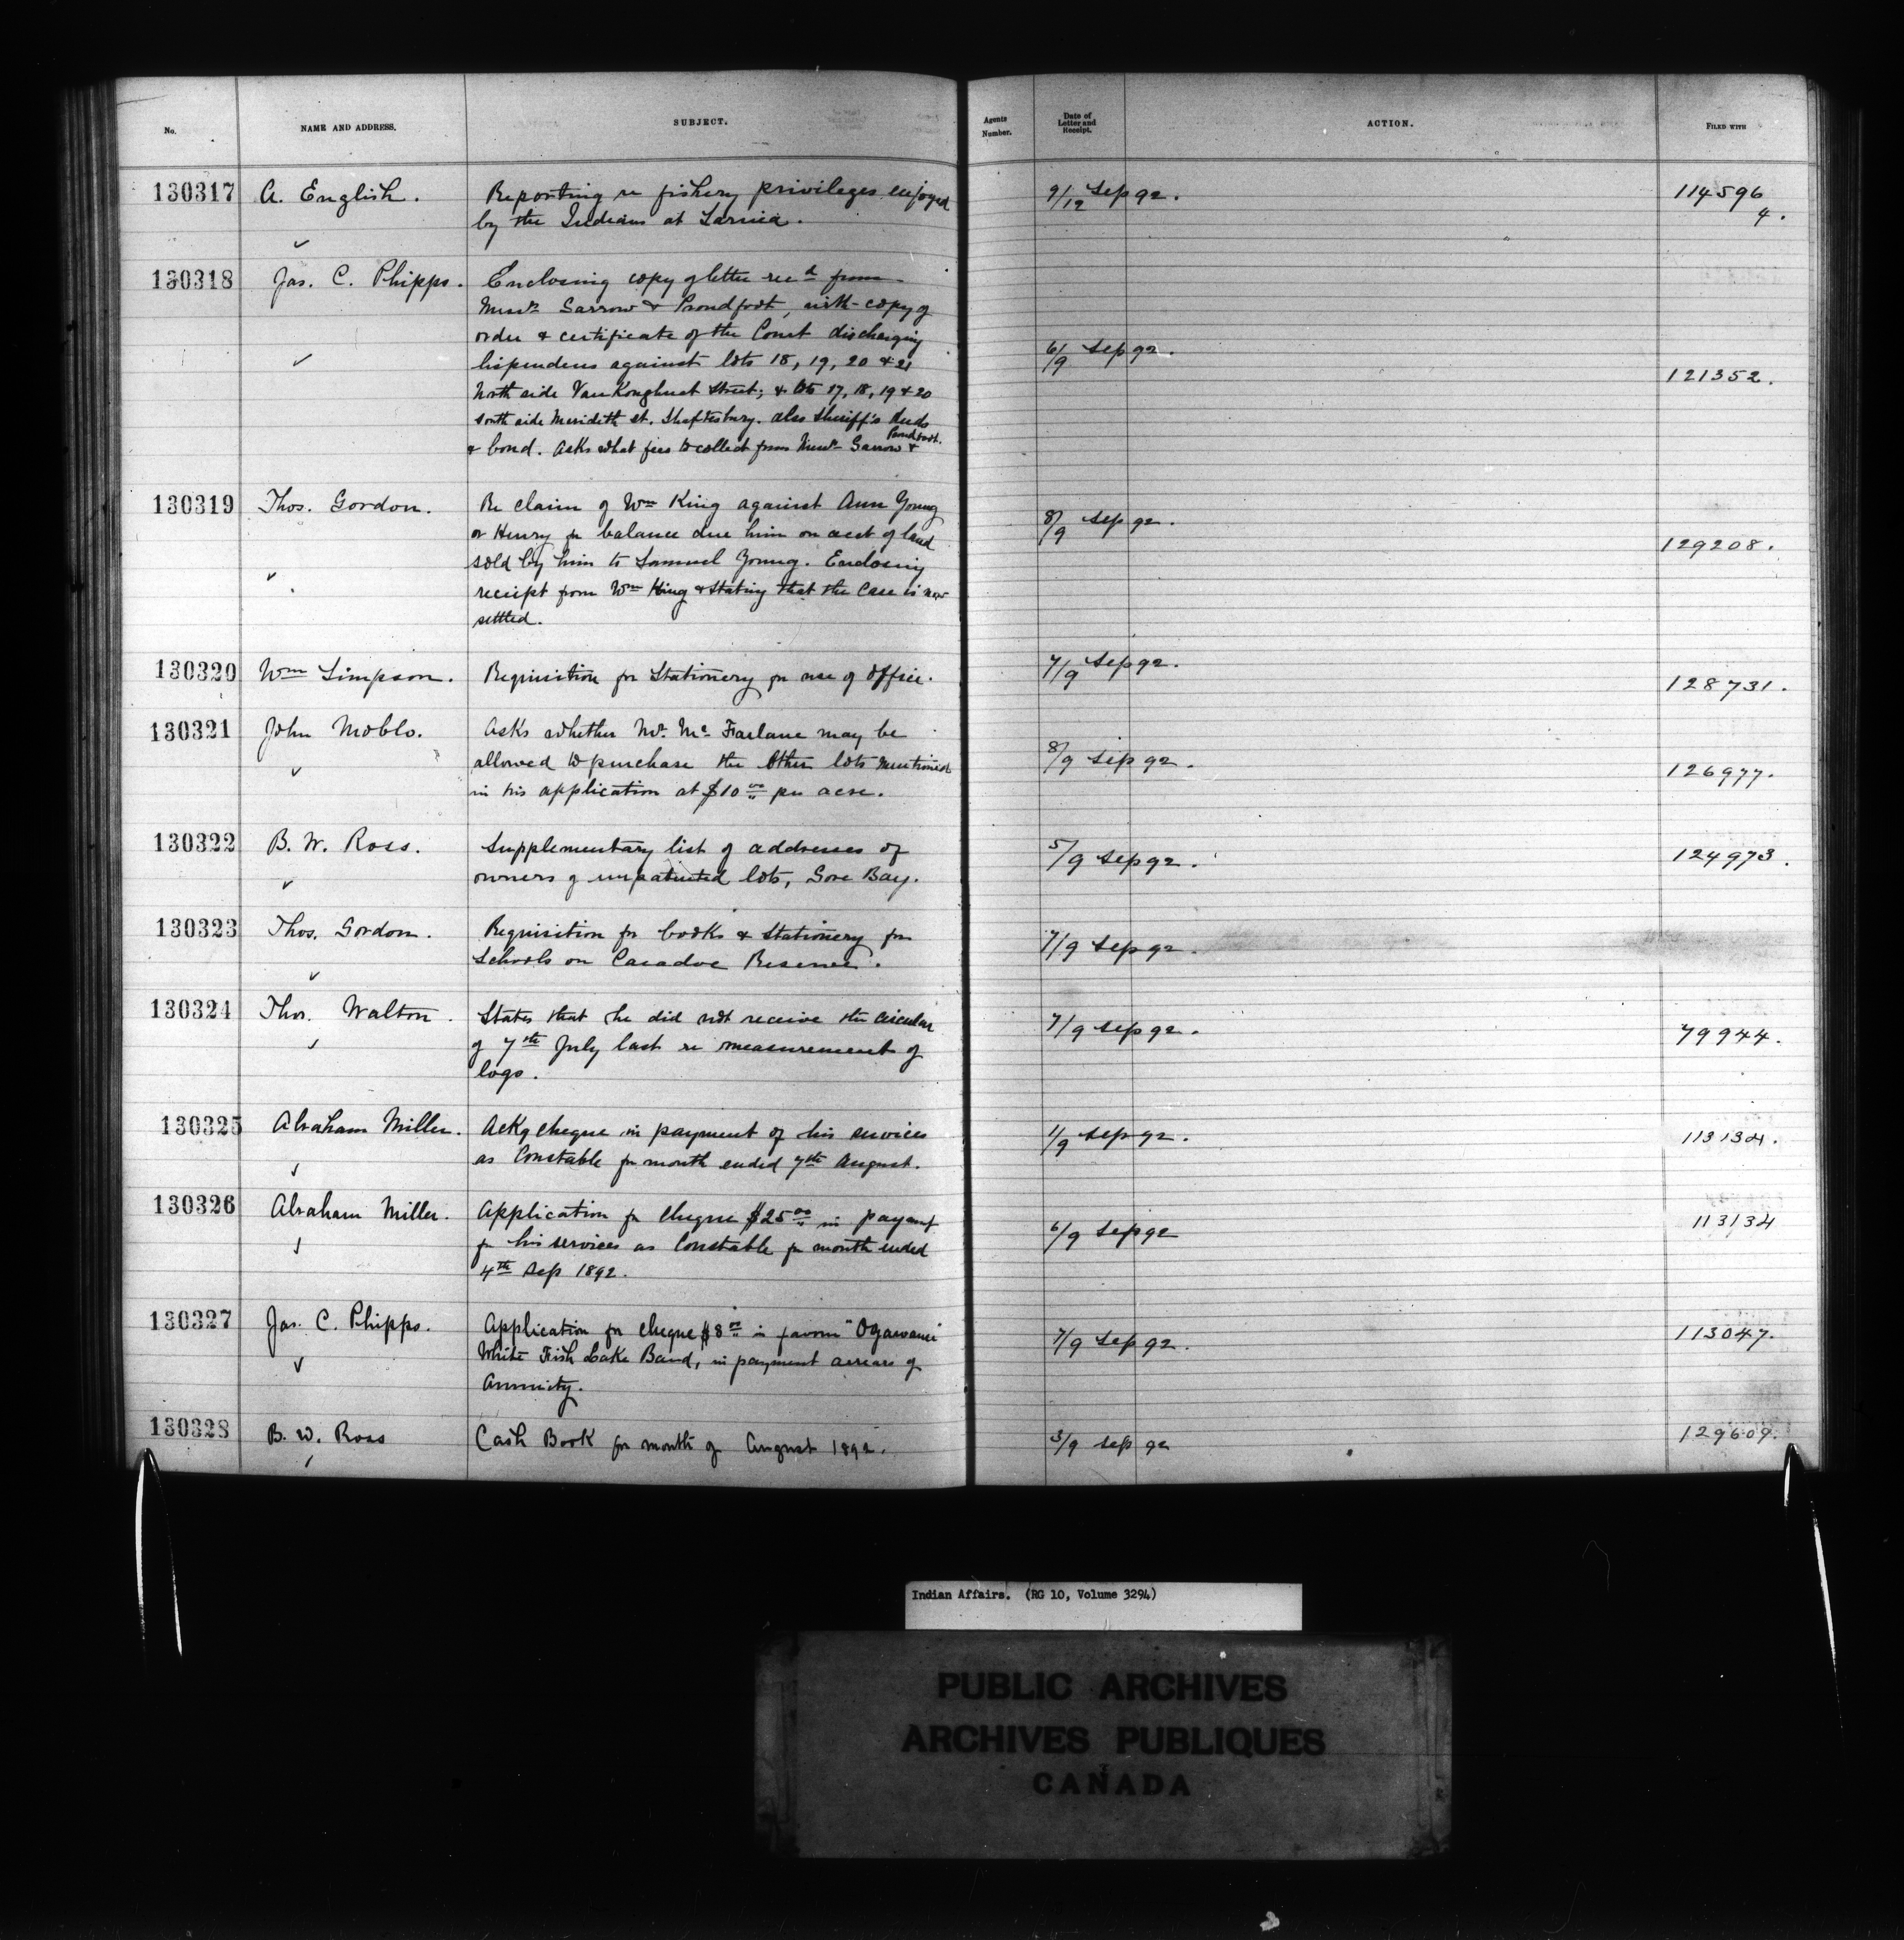 No. NAME AND ADDRESS. SUBJECT. Agents Number. Date of Letter and Receipt. ACTION. FILED WITH
130317 A. English. Reporting re fishery privileges enjoyed 9/12 Sep 92. 114596
by the Indians at Sarnia. 4.
130318 Jas. C. Phipps. Enclosing copy of letter rec'd from
Messrs Garrow & Proudfoot, with copy of
order & certificate of the Court discharging
lispendens against lots 18, 19, 20 & 21 6/9 Sep 92.
North side VanKoughnet Street; & lots 17, 18, 19 & 20 121352.
South side Meridith St. Shaftesbury. also Sheriff's deeds
& bond. Asks what fees to collect from Messrs Garrow & Proudfoot.
130319 Thos. Gordon. Re claim of Wm King against Ann Young
or Henry for balance due him on acct of land 8/9 Sep 92.
sold by him to Samuel Young. Enclosing 129208.
receipt from Wm King & stating that the case is now
settled.
130320 Wm Simpson. Requisition for Stationery for use of Office. 7/9 Sep 92. 128731.
130321 John Moblo. Asks whether Mr. Mc Farlane may be
allowed to purchase the other lots mentioned 8/9 Sep 92. 126977.
in his application at $10 00 per acre.
130322 B. W. Ross. Supplementary list of addresses of 5/9 Sep 92. 124973.
owners of unpatented lots, Gore Bay.
130323 Thos. Gordon. Requisition for books & stationery for 7/9 Sep 92.
Schools on Caradoc Reserve.
130324 Thos. Walton. States that he did not receive the circular 7/9 Sep 92. 79944.
of 7th July last re measurement of
logs.
130325 Abraham Miller. Ackg cheque in payment of his services 1/9 Sep 92. 113134.
as Constable for month ended 7th August.
130326 Abraham Miller. Application for cheque $25 00 in payment 6/9 Sep 92 113134
for his services as Constable for month ended
4th Sep 1892.
130327 Jas. C. Phipps. Application for cheque $8 00 in favour "Ogawanei" 7/9 Sep 92. 113047.
White Fish Lake Band, in payment arrears of
Annuity.
130328 B. W. Ross Cash Book for month of August 1892. 3/9 Sep 92 129609.
Indian Affairs. (RG 10, Volume 3294)
PUBLIC ARCHIVES
ARCHIVES PUBLIQUES
CANADA